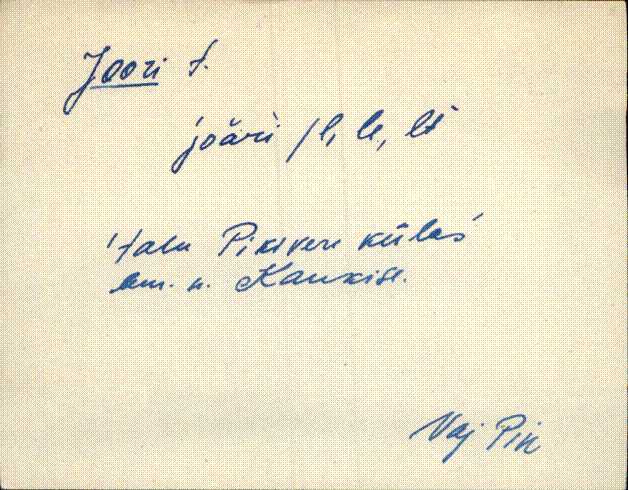 Joori t.
joäri /l, le, lt
'talu Piksvere külas
am. n. Kauxise.
Vaj Pik